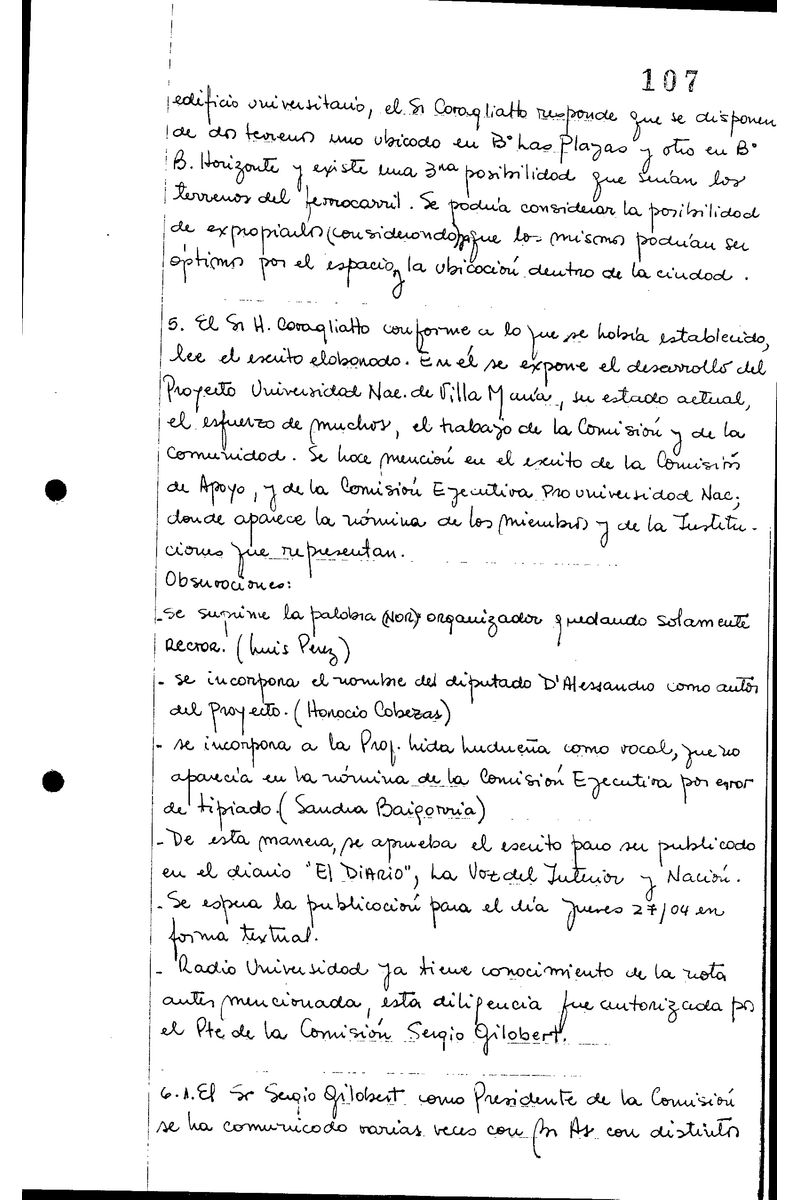 107
edificio universitario, el Sr Coragliatto responde que se disponen
de dos terrenos uno ubicado en B° Las Playas y otro en B°
B. Horizonte y existe una 3ra posibilidad que serían los
terrenos del ferrocarril. Se podría considerar la posibilidad
de expropiarlos (considerando) que los mismos podrían ser
óptimos por el espacio y la ubicación dentro de la ciudad.
5. El Sr H. Coragliatto conforme a lo que se había establecido,
lee el escrito elaborado. En él se expone el desarrollo del
Proyecto Universidad Nac. de Villa María, su estado actual,
el esfuerzo de muchos, el trabajo de la Comisión y de la
Comunidad. Se hace mención en el escrito de la Comisión
de Apoyo, y de la Comisión Ejecutiva Prouniversidad Nac;
donde aparece la nómina de los miembros y de la Institu-
ciones que representan.
Observaciones:
-se suprime la palabra (NOR) organizador quedando solamente
RECTOR. (Luis Perez)
- se incorpora el nombre del diputado D'Alessandro como autor
del Proyecto. (Horacio Cabezas)
- se incorpora a la Prof. Lida Ludueña como vocal, que no
aparecía en la nómina de la Comisión Ejecutiva por error
de tipiado. (Sandra Baigorria)
- De esta manera, se aprueba el escrito para ser publicado
en el diario "El DIARIO", La Voz del Interior y Nación.
- Se espera la publicación para el día Jueves 27/04 en
forma textual.
- Radio Universidad ya tiene conocimiento de la nota
antes mencionada, esta diligencia fue autorizada por
el Pte de la Comisión Sergio Gilobert.
6.1. El Sr Sergio Gilobert como Presidente de la Comisión
se ha comunicado varias veces con Bs As con distintos